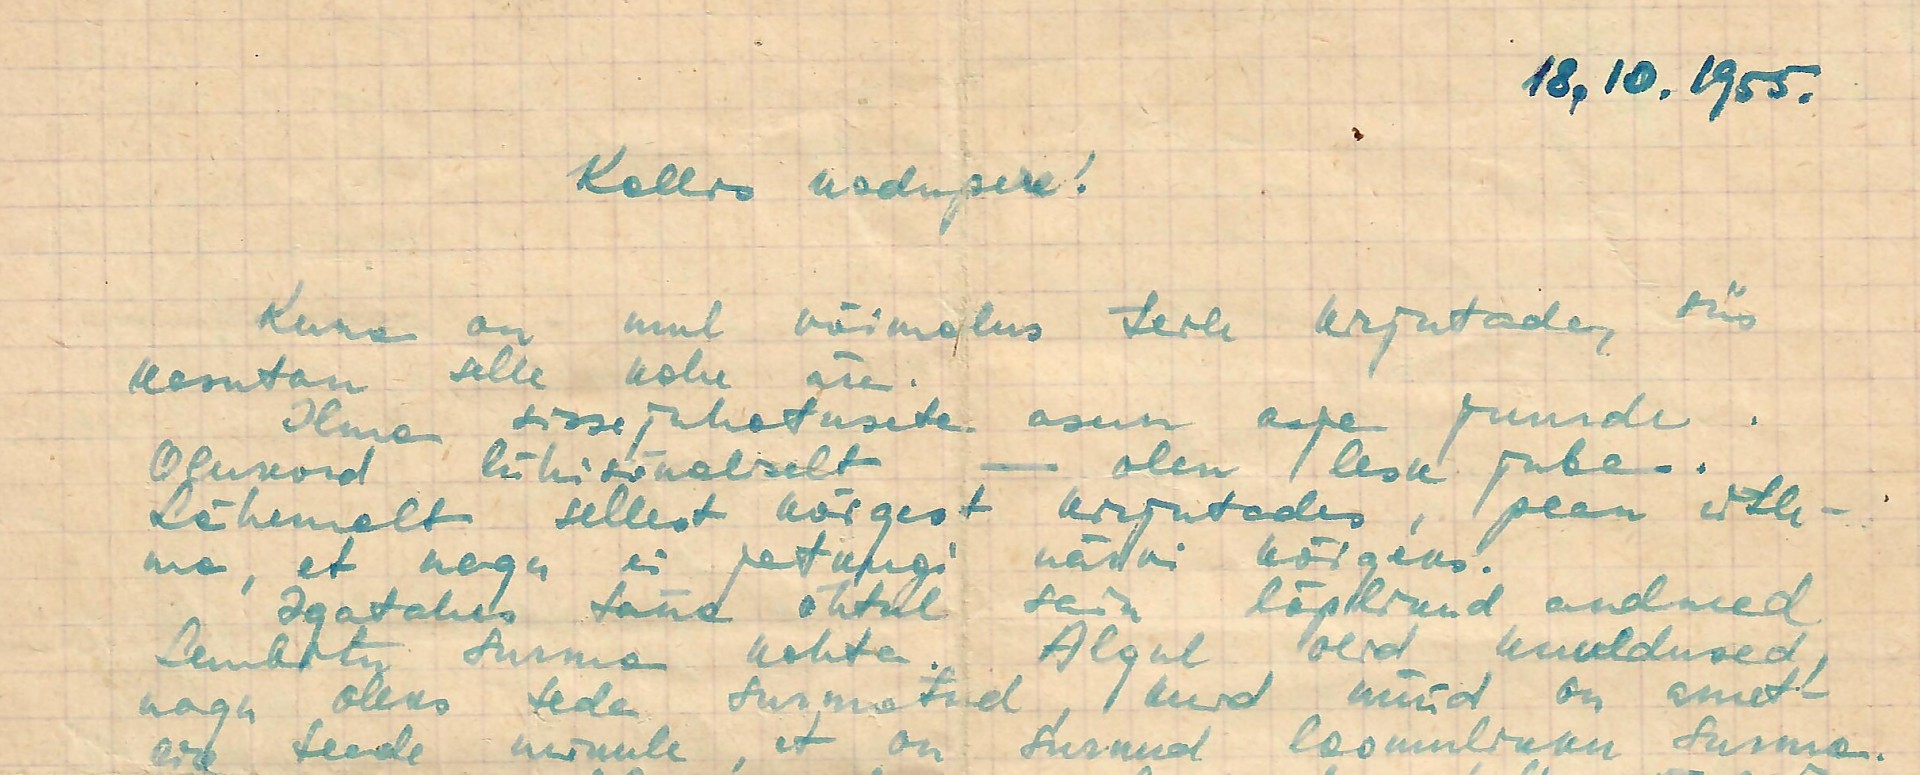 18.10.1955.
Kallis kodupere!
Kuna on mul võimalus Teile kirjutada, siis
kasutan selle kohe ära.
Ilma sissejuhatuseta asun asja juurde.
Olukord lühisõnaliselt — olen lesk juba.
Lähemalt sellest kõigest kirjutades, pean ütle-
ma, et nagu ei jatkugi närvi kõigeks.
Igatahes täna õhtul sain lõplikud andmed
Lembitu surma kohta. Algul olid kuuldused,
nagu oleks teda surmatud, kuid nüüd on amet-
lik teade minule, et on surnud loomulikku surma.